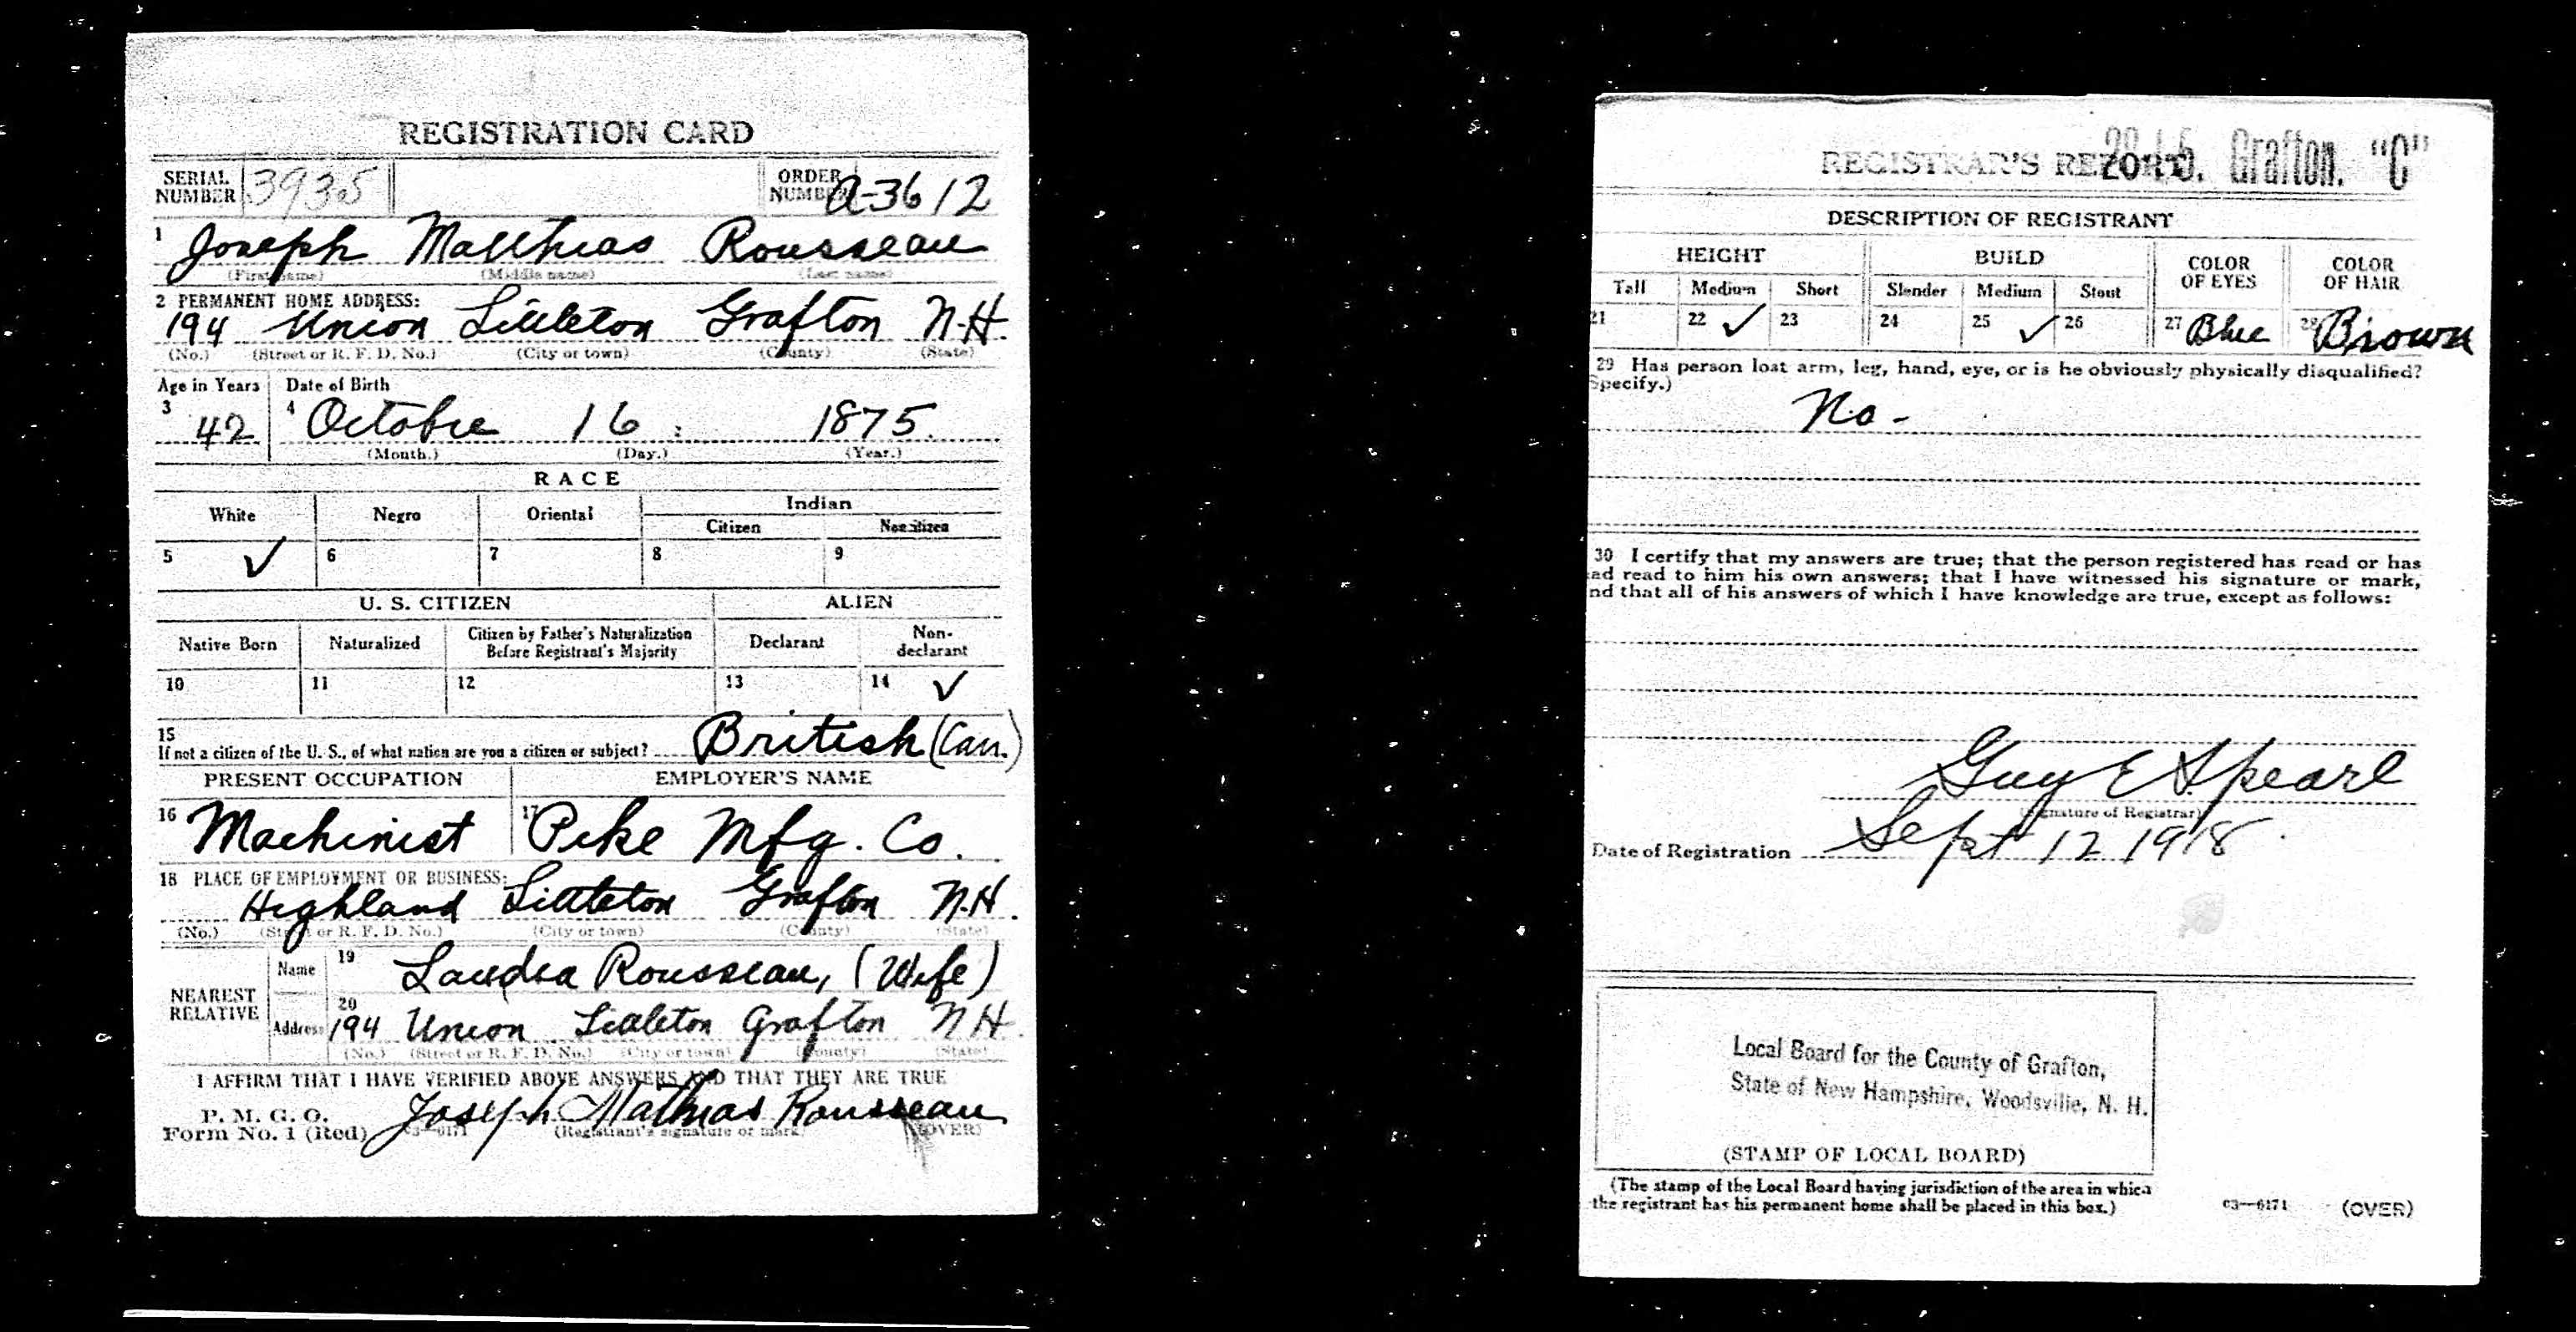 REGISTRATION CARD
SERIAL NUMBER 3935 ORDER NUMBER A-3612
1 Joseph Matthias Rousseau
(First name) (Middle name) (Last name)
2 PERMANENT HOME ADDRESS:
194 Union Littleton Grafton N.H.
(No.) (Street or R. F. D. No.) (City or town) (County) (State)
Age in Years Date of Birth
3 42 4 Octobre 16 1875
(Month.) (Day.) (Year.)
RACE
White Negro Oriental Indian
Citizen Noncitizen
5 ✓ 6 7 8 9
U. S. CITIZEN ALIEN
Native Born Naturalized Citizen by Father's Naturalization Before Registrant's Majority Declarant Non-declarant
10 11 12 13 14 ✓
15 If not a citizen of the U. S., of what nation are you a citizen or subject? British (Can.)
PRESENT OCCUPATION EMPLOYER'S NAME
16 Machinist 17 Pike Mfg. Co.
18 PLACE OF EMPLOYMENT OR BUSINESS:
Highland Littleton Grafton N.H.
(No.) (Street or R. F. D. No.) (City or town) (County) (State)
NEAREST RELATIVE
Name 19 Rousseau, (Wife)
Address 20 194 Union Littleton Grafton N H.
(No.) (Street or R. F. D. No.) (City or town) (County) (State)
I AFFIRM THAT I HAVE VERIFIED ABOVE ANSWERS AND THAT THEY ARE TRUE
P. M. G. O.
Form No. 1 (Red) 03—6171 Joseph Mathias Rousseau
(Registrant's signature or mark) (OVER)
REGISTRAR'S REPORT Grafton. "C"
DESCRIPTION OF REGISTRANT
HEIGHT BUILD COLOR OF EYES COLOR OF HAIR
Tall Medium Short Slender Medium Stout
21 22 ✓ 23 24 25 ✓ 26 27 Blue 28 Brown
29 Has person lost arm, leg, hand, eye, or is he obviously physically disqualified?
Specify.)
No-
30 I certify that my answers are true; that the person registered has read or has
ad read to him his own answers; that I have witnessed his signature or mark,
nd that all of his answers of which I have knowledge are true, except as follows:
Guy E Spearl
(Signature of Registrar)
Date of Registration Sept 12 1918
Local Board for the County of Grafton,
State of New Hampshire, Woodsville, N. H.
(STAMP OF LOCAL BOARD)
(The stamp of the Local Board having jurisdiction of the area in which
the registrant has his permanent home shall be placed in this box.)
03—6171 (OVER)